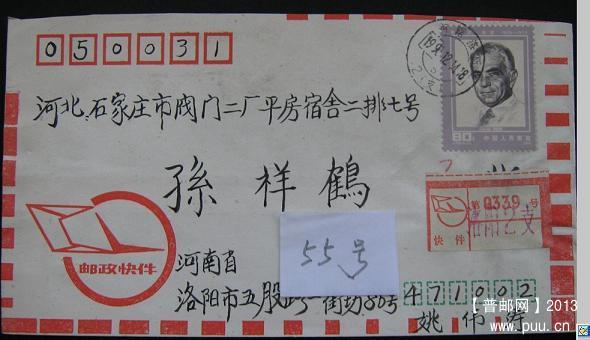 050031
80分
中国人民邮政
河北.石家庄市阀门二厂平房宿舍二排七号
孫祥鶴
第0339号
洛阳
支
快件
邮政快件
55号
河南省
洛阳市五股路一街坊80号
471002
姚伟
【普邮网】2013
www.puu.cn